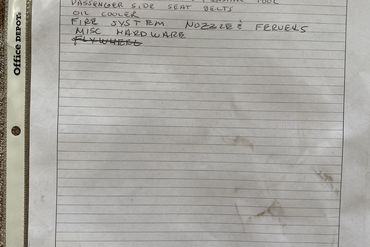 TOOL
PASSENGER SIDE SEAT BELTS
OIL COOLER
FIRE SYSTEM NOZZLES FERVELS
MISC HARDWARE
FLYWHEEL
Office DEPOT